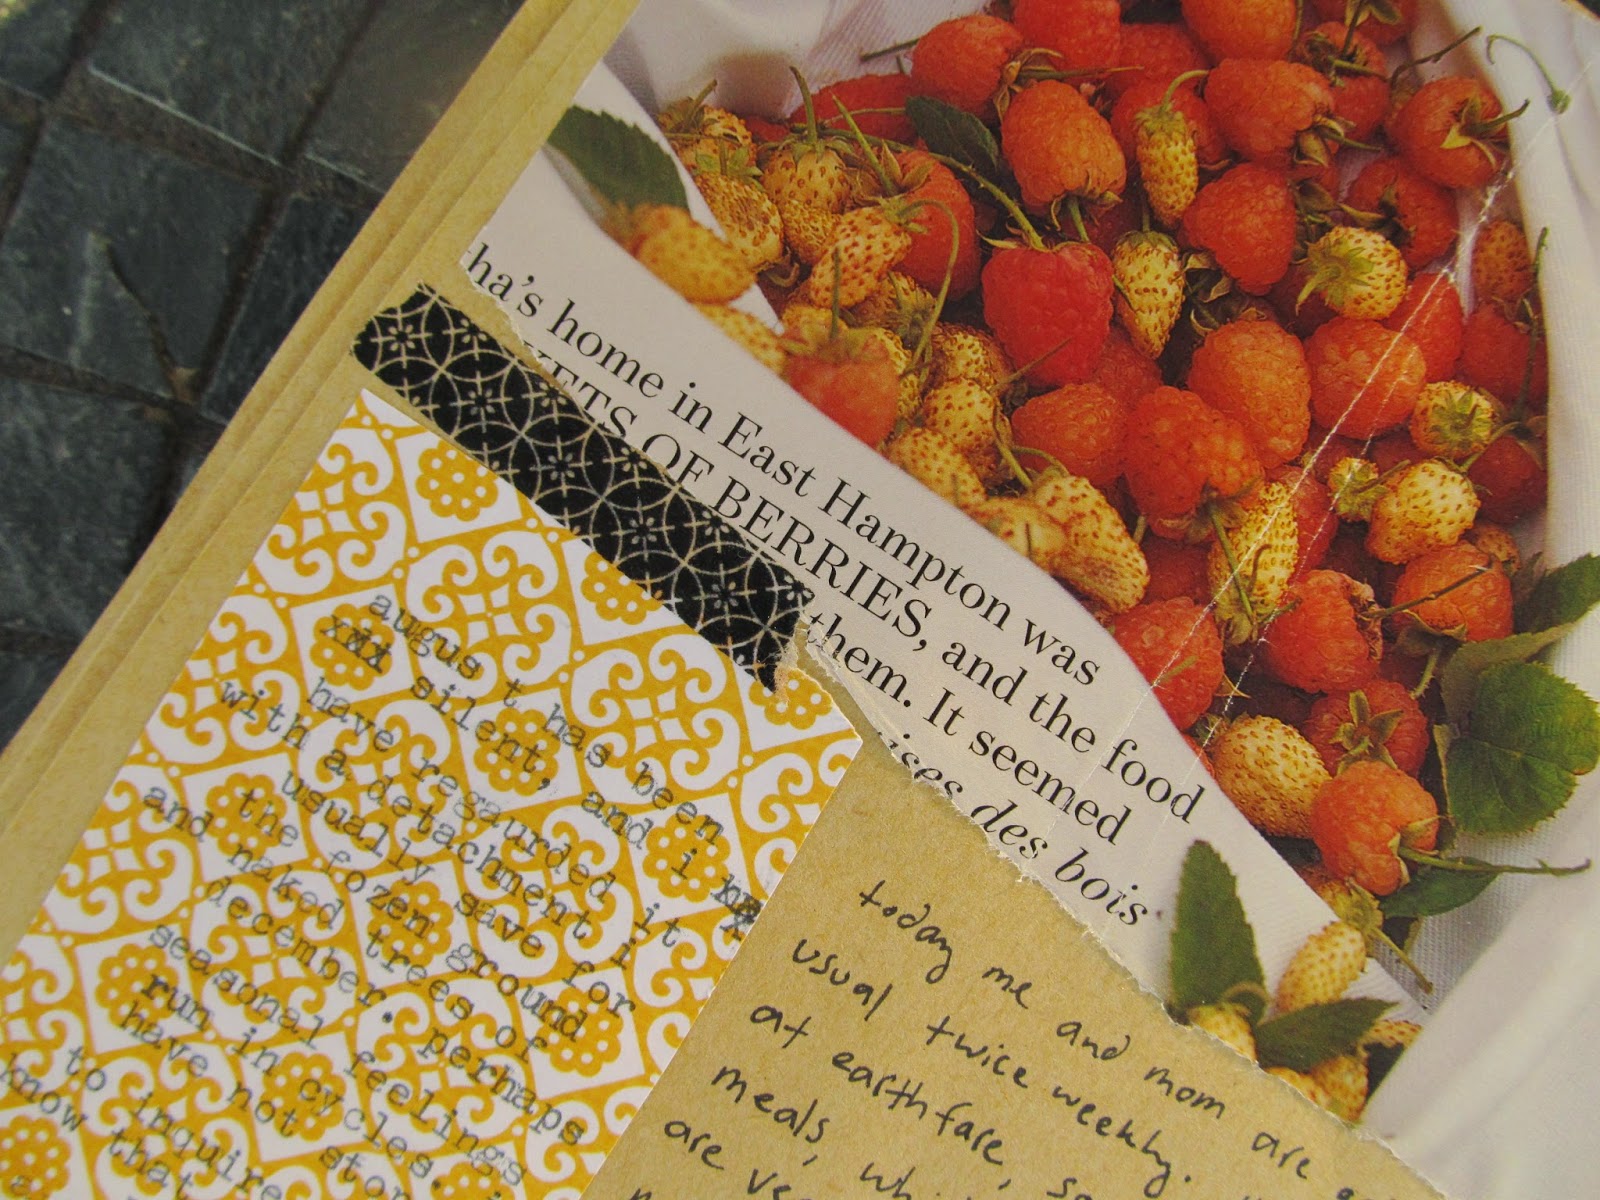 ha's home in East Hampton was
ETS OF BERRIES, and the food
them. It seemed
ises des bois
augus t has been
silent, and i
have regaurded it
with a detachment i
usually save for
the fozen ground
and naked trees of
december. perhaps
seasonal feelings
run in cycles.
have not
to inquire
know that
today me and mom are
usual twice weekly.
at earthfare,
meals,
are